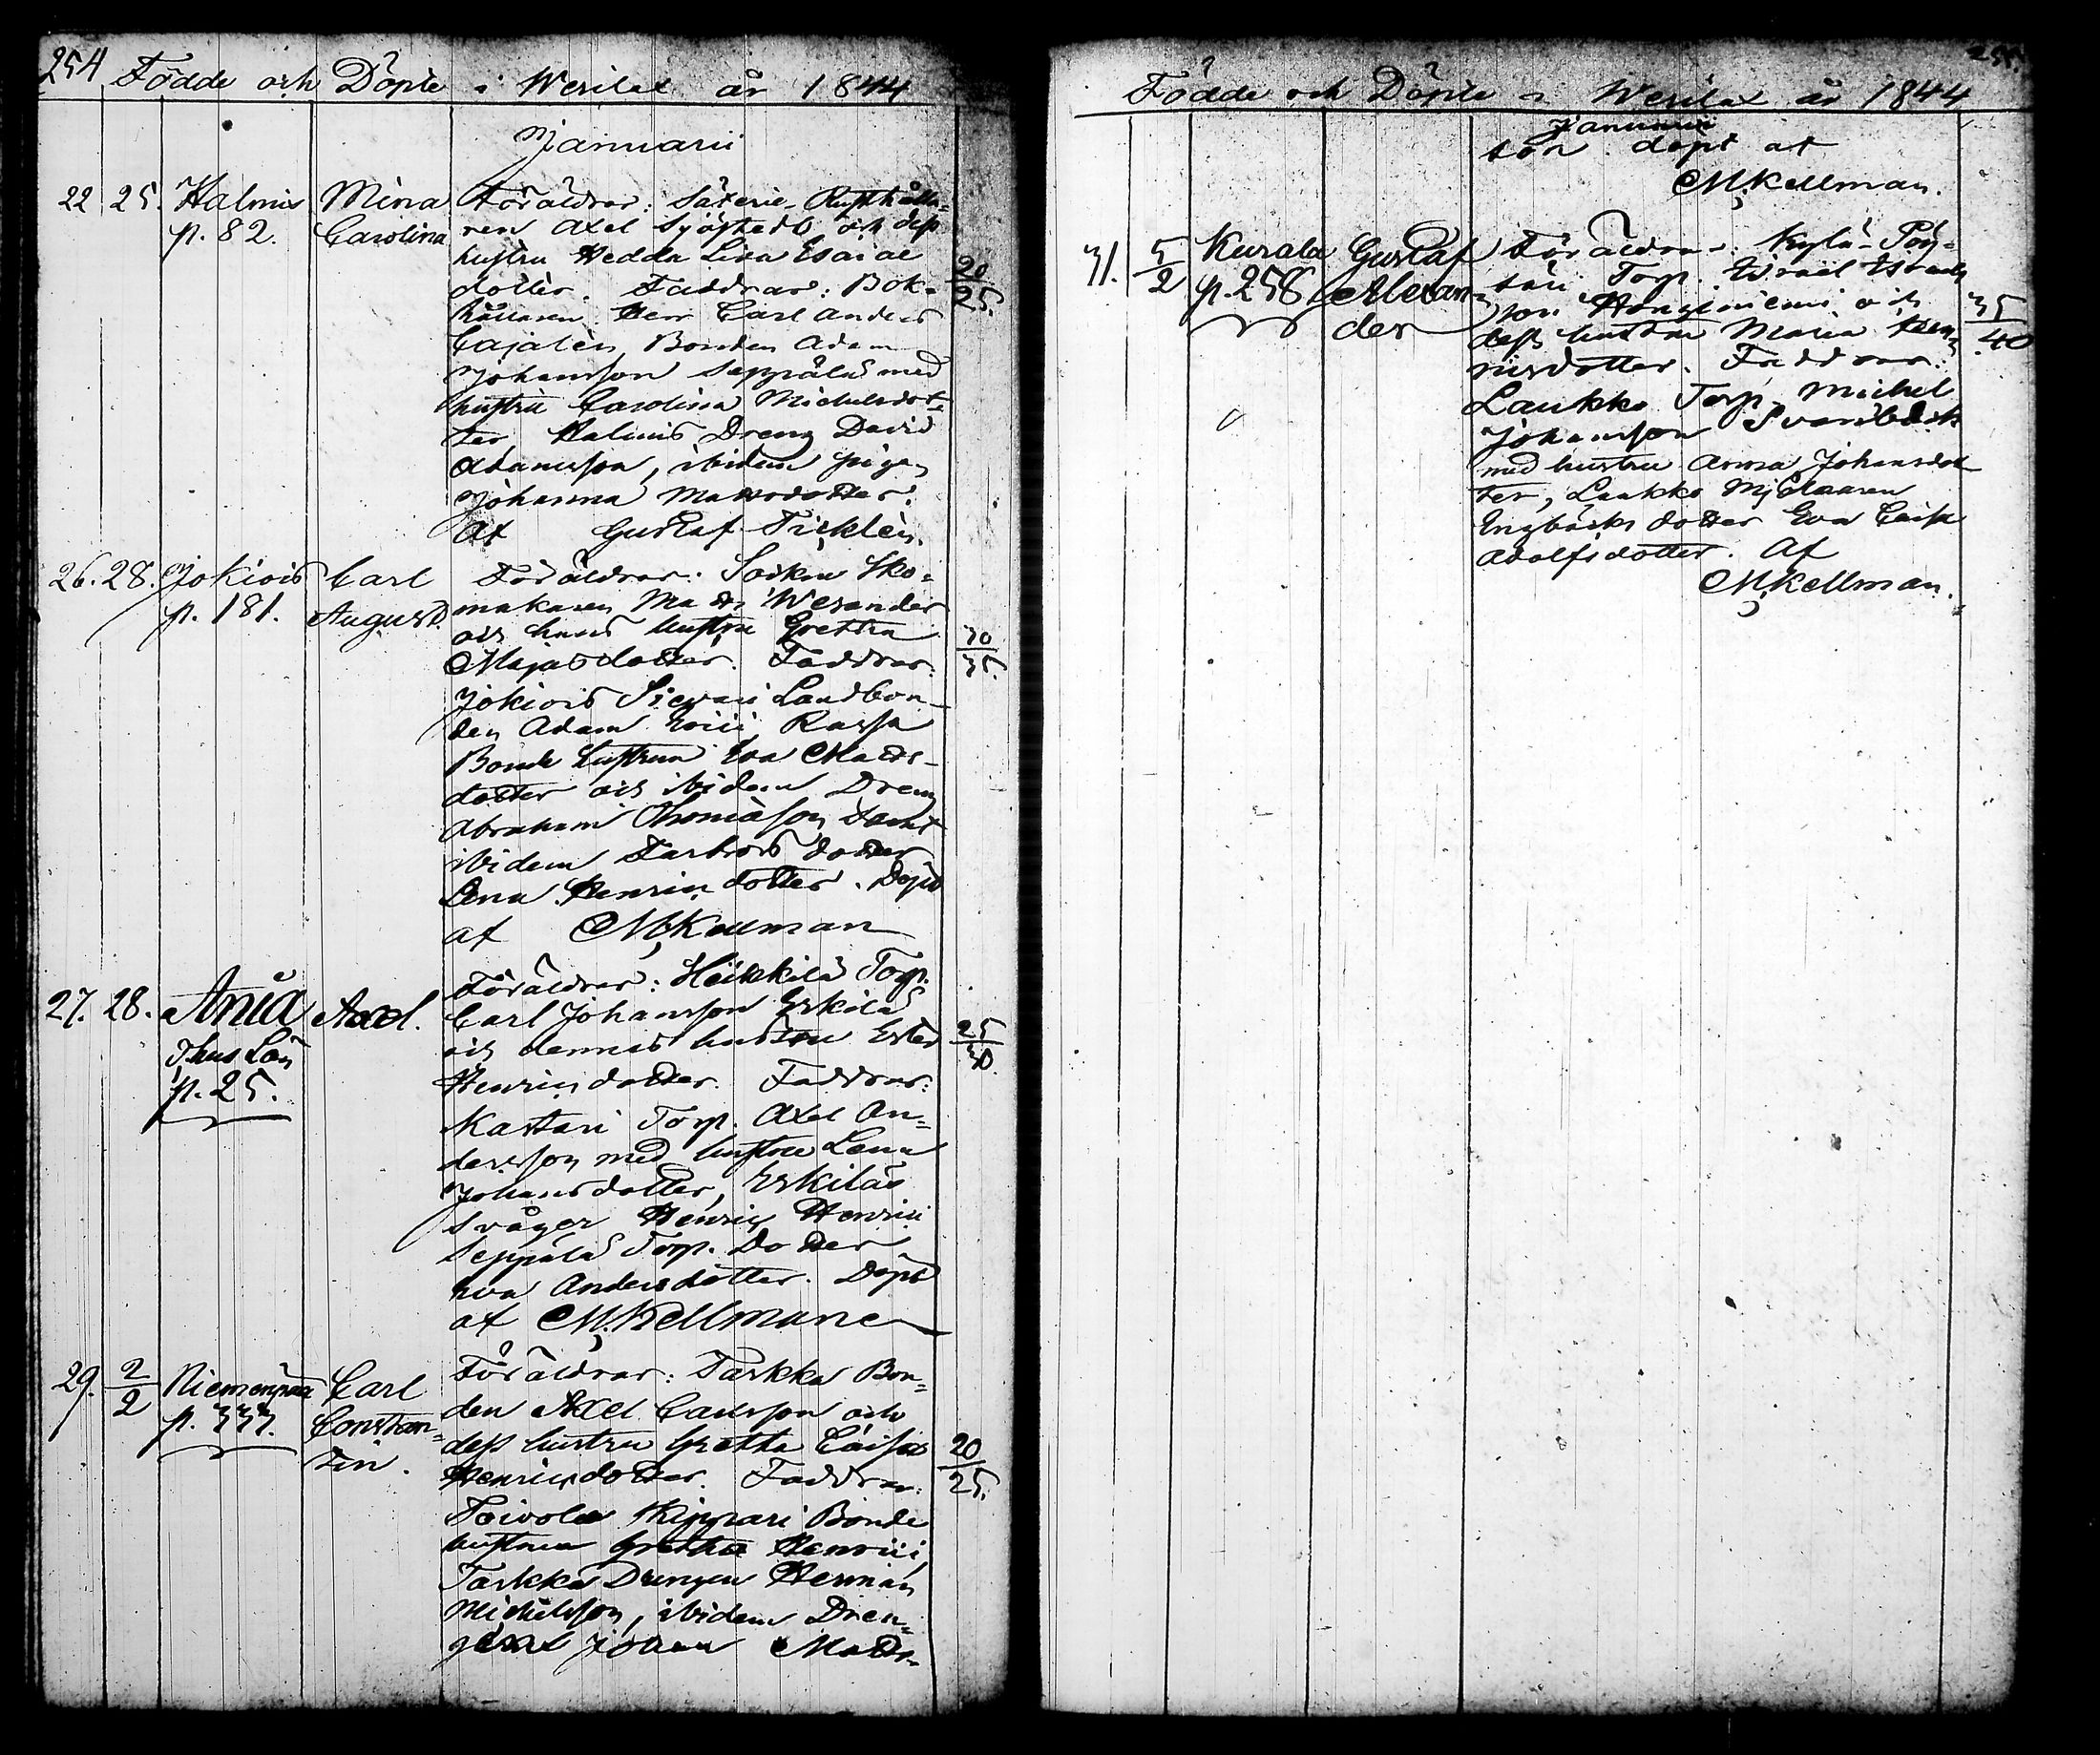 254
Födde och Döpte i Wesilax år 1844
Januarii
22 25. Halmis Mina Föräldrar: Säterie-Rusthålla=
p. 82. Carolina ren Axel Sjöstedt och dess
hustru Hedda Lisa Esaiae
dotter. Faddrar: Bok= 20/25.
hållaren Herr Carl Anders
Cajalén, Bonden Adam
Johansson Seppälä med
hustru Carolina Michelsdot=
ter Halmis Dreng David
Adamsson, ibidem pigan
Johanna Matsdotter.
Af Gustaf Ticklén.
26. 28. Jokiois Carl Föräldrar: Socken Sko=
p. 181. August. makaren Matts Wesander
och hans hustru Gretha 30/35.
Majasdotter. Faddrar:
Jokiois Sievari Landbon=
den Adam Erici, Rassa
Bonde hustrun Eva Matts=
dotter och ibidem Dreng
Abraham Thomasson samt
ibidem Farbrors dotter
Lena Henricsdotter. Döpt
af M. Kellman
27. 28. Ania Axel. Föräldrar: Heikkilä Torp.
Carl Johansson Eskilä
p. 25. och dennes hustru Ester 25/30.
Henricsdotter. Faddrar:
Kastari Torp. Axel An=
dersson med hustru Lena
Johansdotter, Eskiläs
Svåger Henric Henrici
Seppälä Torp. Dotter
Eva Andersdotter. Döpt
af M. Kellman
29. 2/2 Niemenpää Carl Föräldrar: Tarkka Bon=
p. 333. Constan= den Axel Carlsson och
tin. dess hustru Gretha Caisa 20/25.
Henricsdotter. Faddrar:
Toivola Kippari Bonde
hustrun Gretha Henrici,
Tarkka Drengen Herman
Michelsson, ibidem Dren=
gen Johan Matts=
255.
Födde och Döpte i Wesilax år 1844
Januarii
son. döpt af
M. Kellman.
31. 5/2 Kurala Gustaf Föräldrar: Kylä-Pöy=
p. 258 Alexan= Torp. Israel Israels
der son Hongoniemi och 35/40
dess hustru Maria Hen=
ricsdotter. Faddrar:
Laukko Torp. Michel
Johansson
med hustru Anna Johansdot=
ter, Laukko Mjölnaren
Engbäcks dotter Eva Caisa
Adolfsdotter. Af
M. Kellman.